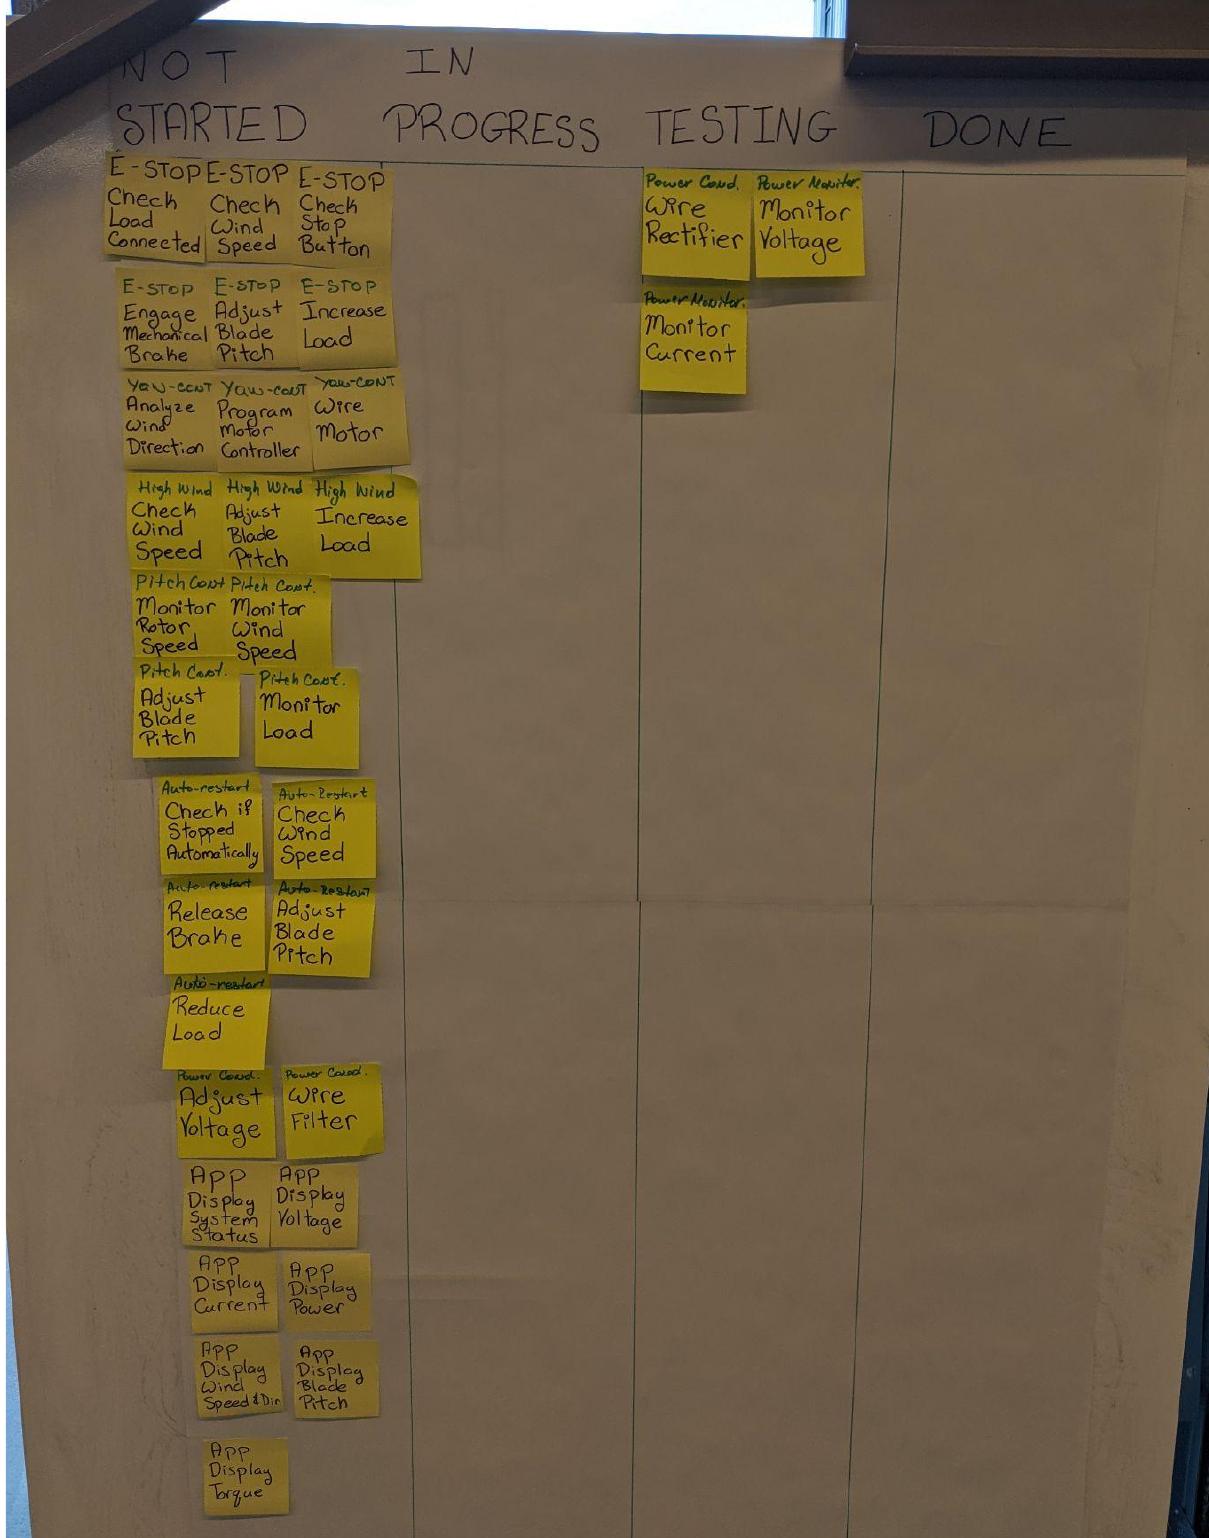 NOT
STARTED
IN
PROGRESS
TESTING
DONE
E-STOP
Check
Load
Connected
E-STOP
Check
Wind
Speed
E-STOP
Check
Stop
Button
E-STOP
Engage
Mechanical
Brake
E-STOP
Adjust
Blade
Pitch
E-STOP
Increase
Load
Yaw-CONT
Analyze
Wind
Direction
Yaw-CONT
Program
Motor
Controller
Yaw-CONT
Wire
Motor
High Wind
Check
Wind
Speed
High Wind
Adjust
Blade
Pitch
High Wind
Increase
Load
Pitch Cont
Monitor
Rotor
Speed
Pitch Cont.
Monitor
Wind
Speed
Pitch Cont.
Adjust
Blade
Pitch
Pitch Cont.
Monitor
Load
Auto-restart
Check if
Stopped
Automatically
Auto-Restart
Check
Wind
Speed
Auto-restart
Release
Brake
Auto-Restart
Adjust
Blade
Pitch
Auto-restart
Reduce
Load
Power Cond.
Adjust
Voltage
Power Cond.
Wire
Filter
App
Display
System
Status
App
Display
Voltage
App
Display
Current
App
Display
Power
App
Display
Wind
Speed & Dir
App
Display
Blade
Pitch
App
Display
Torque
Power Cond.
Wire
Rectifier
Power Monitor.
Monitor
Voltage
Power Monitor.
Monitor
Current